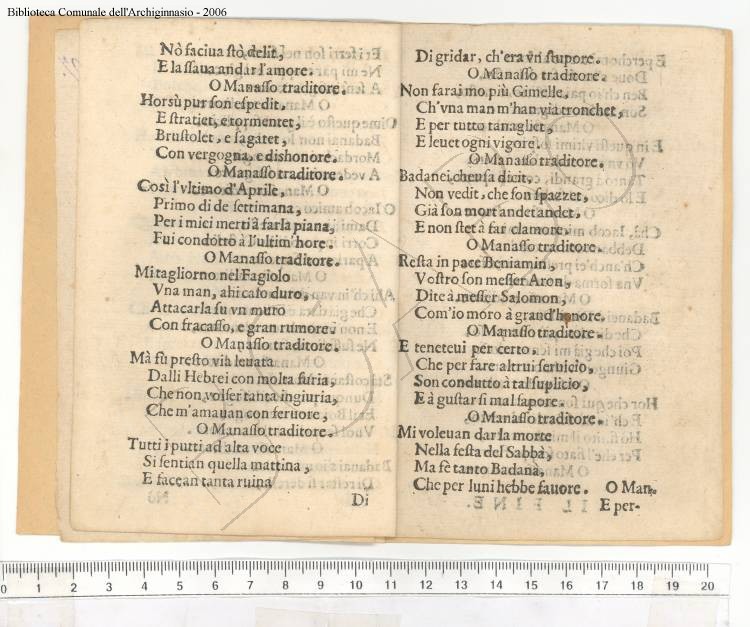 Biblioteca Comunale dell'Archiginnasio - 2006
Nõ faciua stõ delit,
E lassaua andar l'amore.
O Manasso traditore.
Horsù pur son espedit,
E stratiet, e tormentet,
Brustolet, e sagatet,
Con vergogna, e dishonore.
O Manasso traditore.
Così l'vltimo d'Aprile,
Primo dì de settimana,
Per i mici merti à farla piana,
Fui condotto à l'vltim'hore.
O Manasso traditore.
Mi tagliorno nel Fagiolo
Vna man, ahi caso duro,
Attacarla su vn muro
Con fracasso, e gran rumore.
O Manasso traditore.
Mà fù presto via leuata
Dalli Hebrei con molta furia,
Che non volser tanta ingiuria,
Che m'amauan con feruore,
O Manasso traditore.
Tutti i putti ad alta voce
Si sentian quella mattina,
E facean tanta ruina
Di
Di gridar, ch'era vn stupore.
O Manasso traditore.
Non farai mo più Gimelle,
Ch'vna man m'han via tronchet,
E per tutto tanagliet,
E leuet ogni vigore.
O Manasso traditore.
Badanei che usa dicit,
Non vedit, che son spazzet,
Già son mort andet andet,
E non stet à far clamore.
O Manasso traditore.
Resta in pace Beniamin,
Vostro son messer Aron,
Dite à messer Salomon,
Com'io moro à grand'honore.
O Manasso traditore.
E teneteui per certo,
Che per fare altrui seruicio,
Son condutto à tal suplicio,
E à gustar sì mal sapore.
O Manasso traditore.
Mi voleuan dar la morte
Nella festa del Sabbà,
Ma fè tanto Badanà,
Che per luni hebbe fauore. O Man.
E per-
0 1 2 3 4 5 6 7 8 9 10 11 12 13 14 15 16 17 18 19 20